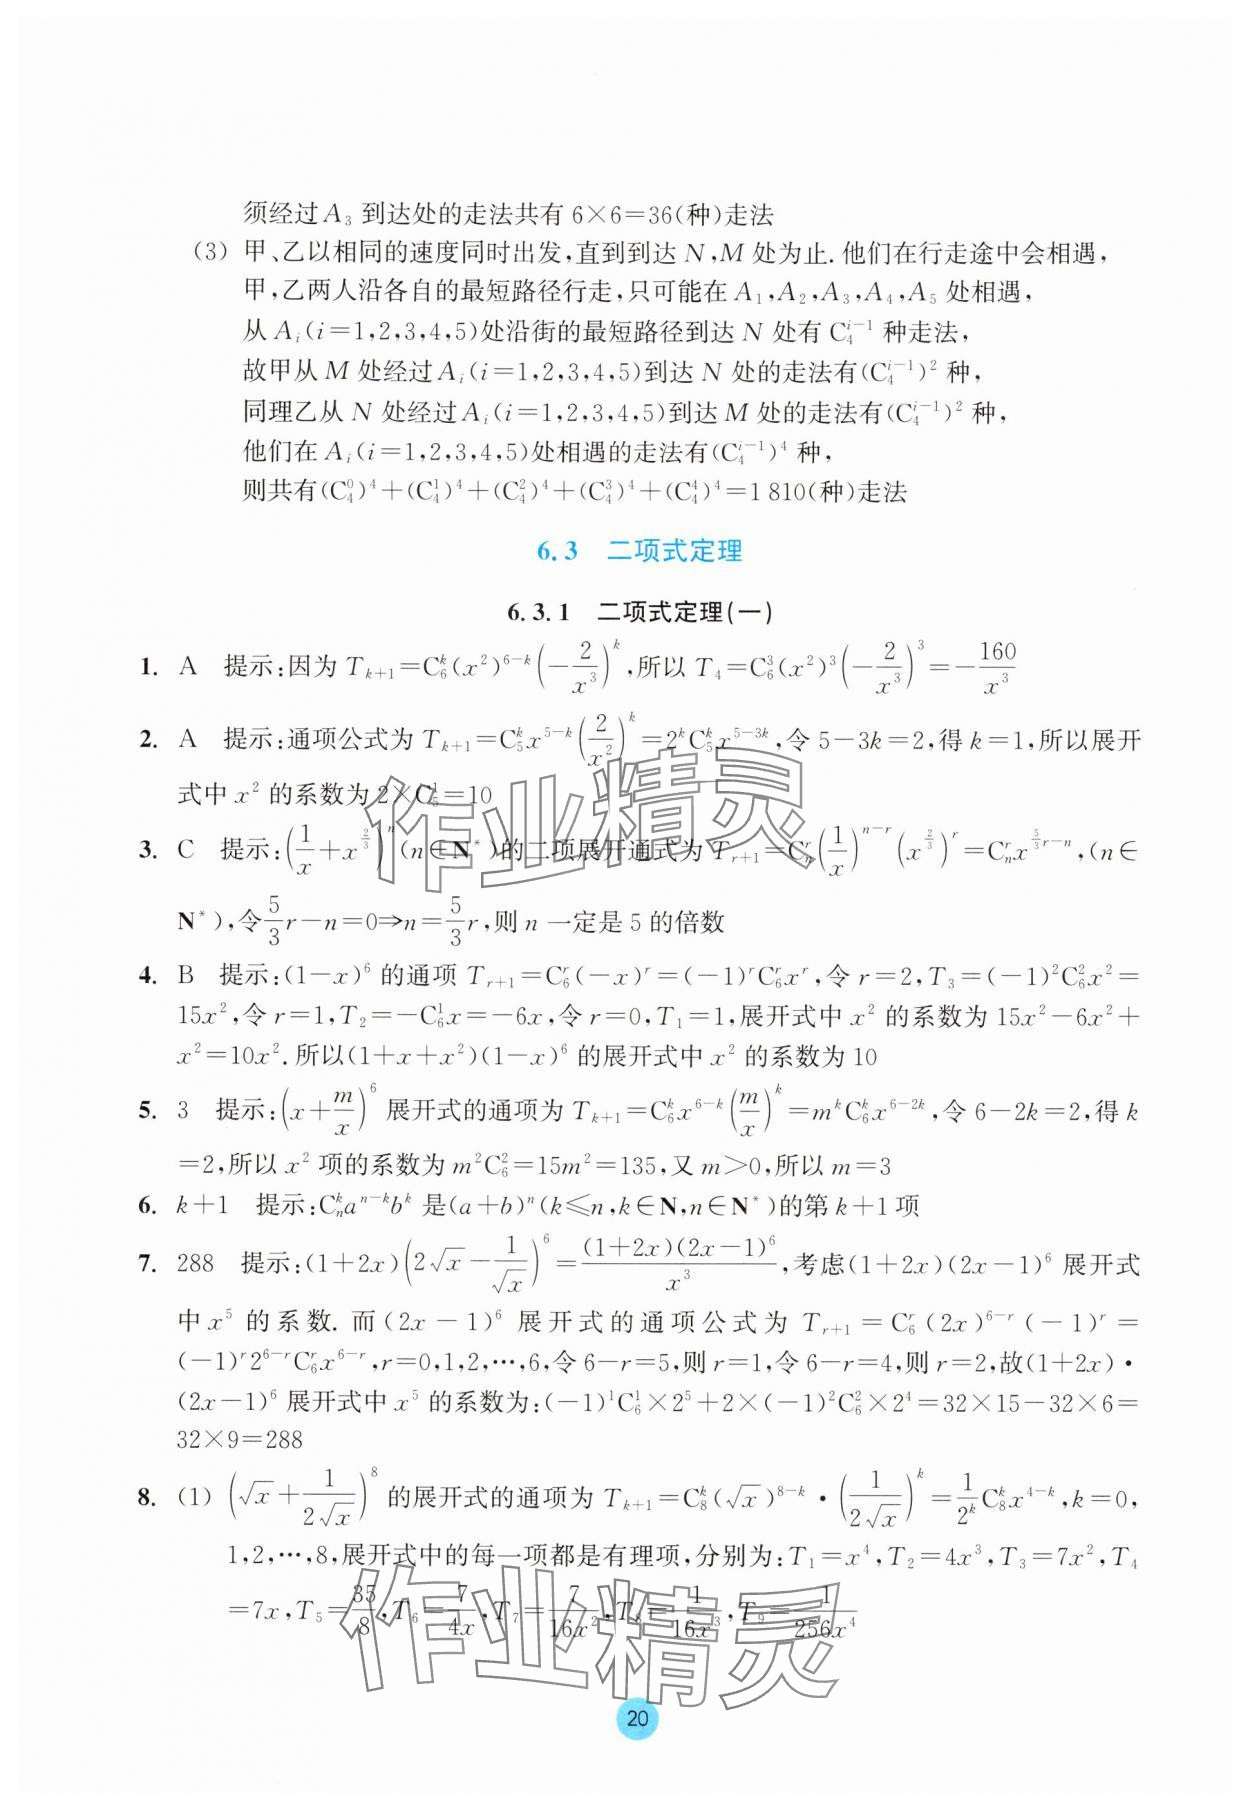 须经过 A₃ 到达处的走法共有 6×6=36(种)走法
(3) 甲、乙以相同的速度同时出发,直到到达 N,M 处为止. 他们在行走途中会相遇,
甲,乙两人沿各自的最短路径行走,只可能在 A₁,A₂,A₃,A₄,A₅ 处相遇,
从 Aᵢ(i=1,2,3,4,5)处沿街的最短路径到达 N 处有 C_4^{i-1} 种走法,
故甲从 M 处经过 Aᵢ(i=1,2,3,4,5)到达 N 处的走法有(C_4^{i-1})² 种,
同理乙从 N 处经过 Aᵢ(i=1,2,3,4,5)到达 M 处的走法有(C_4^{i-1})² 种,
他们在 Aᵢ(i=1,2,3,4,5)处相遇的走法有(C_4^{i-1})⁴ 种,
则共有(C_4^0)⁴+(C_4^1)⁴+(C_4^2)⁴+(C_4^3)⁴+(C_4^4)⁴=1 810(种)走法
6.3 二项式定理
6.3.1 二项式定理(一)
1. A 提示:因为 T_{k+1}=C_6^k(x²)^{6-k}(-2/x³)^k,所以 T₄=C_6^3(x²)³(-2/x³)³=-160/x³
2. A 提示:通项公式为 T_{k+1}=C_5^k x^{5-k}(2/x²)^k=2^k C_5^k x^{5-3k},令 5-3k=2,得 k=1,所以展开
式中 x² 的系数为 2×C_5^1=10
3. C 提示:(1/x+x^{2/3})^n(n∈N*)的二项展开通式为 T_{r+1}=C_n^r(1/x)^{n-r}(x^{2/3})^r=C_n^r x^{5/3 r-n},(n∈
N*),令 5/3 r-n=0⇒n=5/3 r,则 n 一定是 5 的倍数
4. B 提示:(1-x)⁶ 的通项 T_{r+1}=C_6^r(-x)^r=(-1)^r C_6^r x^r,令 r=2,T₃=(-1)²C_6^2 x²=
15x²,令 r=1,T₂=-C_6^1 x=-6x,令 r=0,T₁=1,展开式中 x² 的系数为 15x²-6x²+
x²=10x².所以(1+x+x²)(1-x)⁶ 的展开式中 x² 的系数为 10
5. 3 提示:(x+m/x)⁶ 展开式的通项为 T_{k+1}=C_6^k x^{6-k}(m/x)^k=m^k C_6^k x^{6-2k},令 6-2k=2,得 k
=2,所以 x² 项的系数为 m²C_6^2=15m²=135,又 m>0,所以 m=3
6. k+1 提示:C_n^k a^{n-k}b^k 是(a+b)^n(k≤n,k∈N,n∈N*)的第 k+1 项
7. 288 提示:(1+2x)(2√x-1/√x)⁶=(1+2x)(2x-1)⁶/x³,考虑(1+2x)(2x-1)⁶ 展开式
中 x⁵ 的系数. 而(2x-1)⁶ 展开式的通项公式为 T_{r+1}=C_6^r(2x)^{6-r}(-1)^r=
(-1)^r 2^{6-r}C_6^r x^{6-r},r=0,1,2,⋯,6,令 6-r=5,则 r=1,令 6-r=4,则 r=2,故(1+2x)·
(2x-1)⁶ 展开式中 x⁵ 的系数为:(-1)¹C_6^1×2⁵+2×(-1)²C_6^2×2⁴=32×15-32×6=
32×9=288
8. (1) (√x+1/(2√x))⁸ 的展开式的通项为 T_{k+1}=C_8^k(√x)^{8-k}·(1/(2√x))^k=1/2^k C_8^k x^{4-k},k=0,
1,2,⋯,8,展开式中的每一项都是有理项,分别为:T₁=x⁴,T₂=4x³,T₃=7x²,T₄
=7x,T₅=35/8,T₆=7/(4x),T₇=7/(16x²),T₈=1/(16x³),T₉=1/(256x⁴)
作业精灵
作业精灵
20